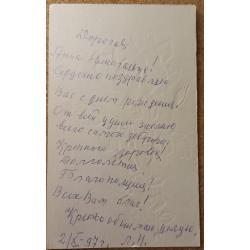 Дорогая
Анна Николаевна!
Сердечно поздравляю
Вас с днем рождения.
От всей души желаю
всего самого доброго,
Крепкого здоровья,
Долголетия,
Благополучия!
Всех Вам благ!
Крепко обнимаю, целую.
2/X-97г. Л.Н.